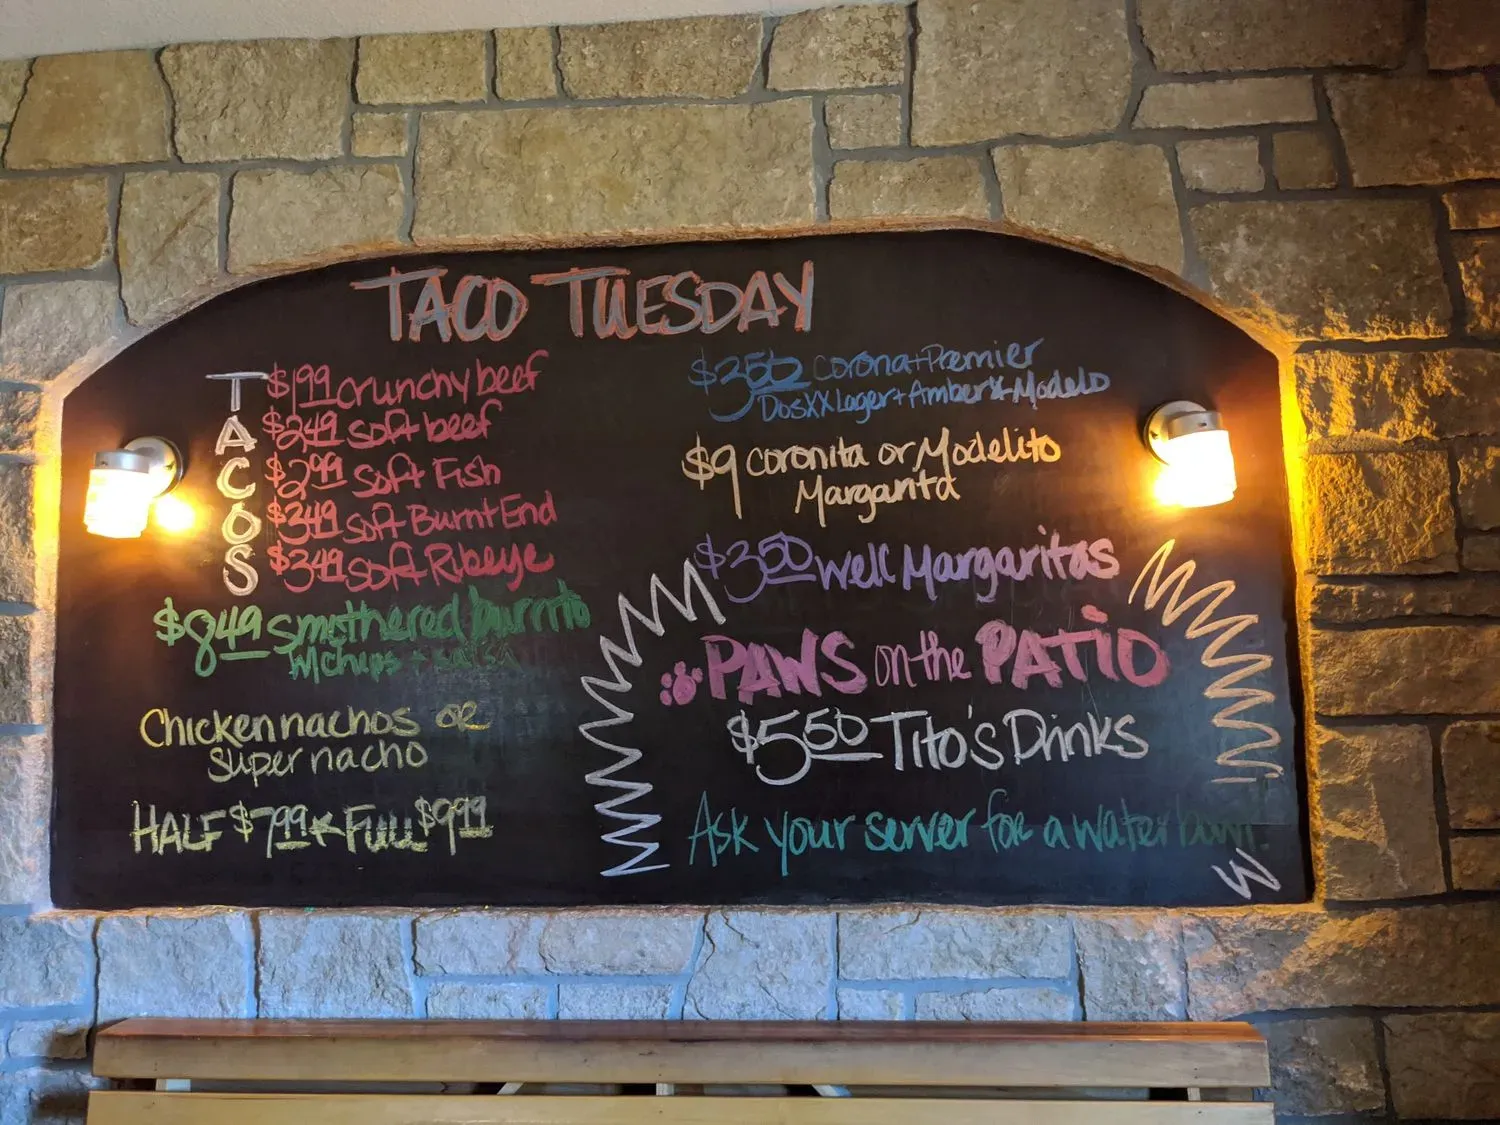 TACO TUESDAY
TACOS
$1.99 crunchy beef
$2.49 soft beef
$2.99 Soft Fish
$3.49 Soft Burnt End
$3.49 Soft Ribeye
$8.49 smothered burrito
w/chips + salsa
Chicken nachos or
super nacho
HALF $7.99 * FULL $9.99
$3.50 Corona + Premier
Dos XX Lager + Amber * Modelo
$9 Coronita or Modelito
Margarita
$3.50 Well Margaritas
PAWS on the PATIO
$5.50 Tito's Drinks
Ask your server for a water bowl!